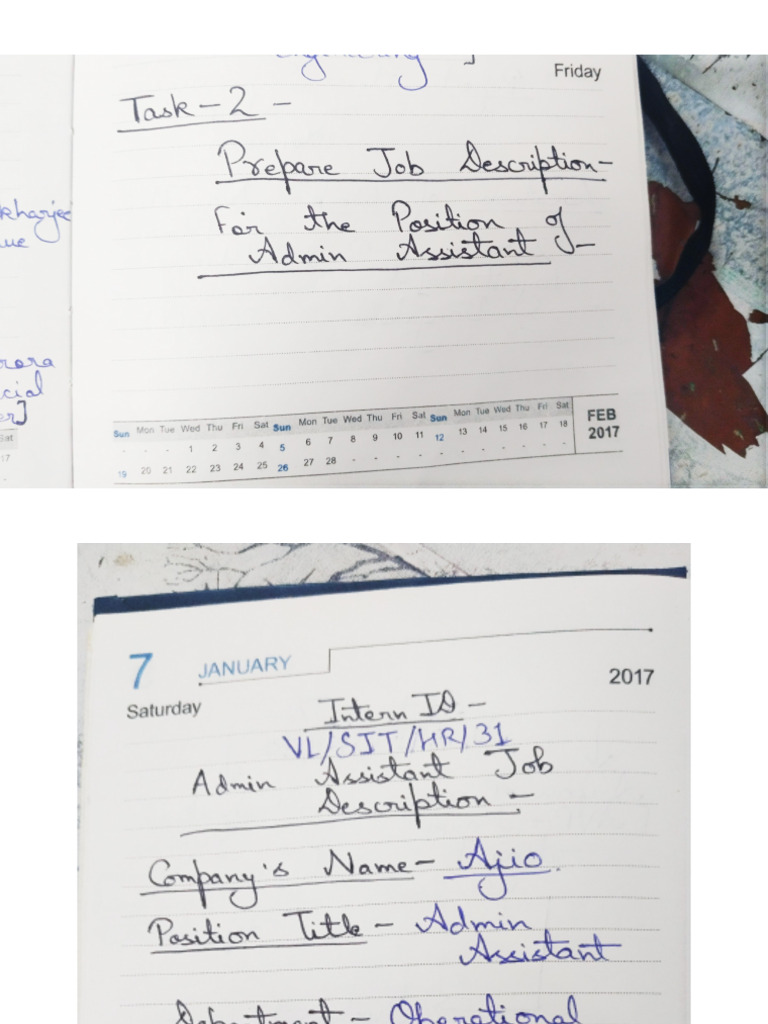 Friday
Task-2 -
Prepare Job Description-
For the Position of
Admin Assistant -
Sun Mon Tue Wed Thu Fri Sat Sun Mon Tue Wed Thu Fri Sat Sun Mon Tue Wed Thu Fri Sat
- - - 1 2 3 4 5 6 7 8 9 10 11 12 13 14 15 16 17 18
19 20 21 22 23 24 25 26 27 28 - - - - - - - - - - -
FEB
2017
7 JANUARY
Saturday
2017
Intern ID -
VL/SIT/HR/31
Admin Assistant Job
Description -
Company's Name - Ajio.
Position Title - Admin
Assistant
Department - Operational